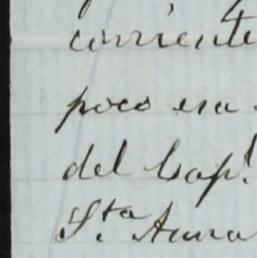 corriente
poco era
del Cap!
Sta Anna